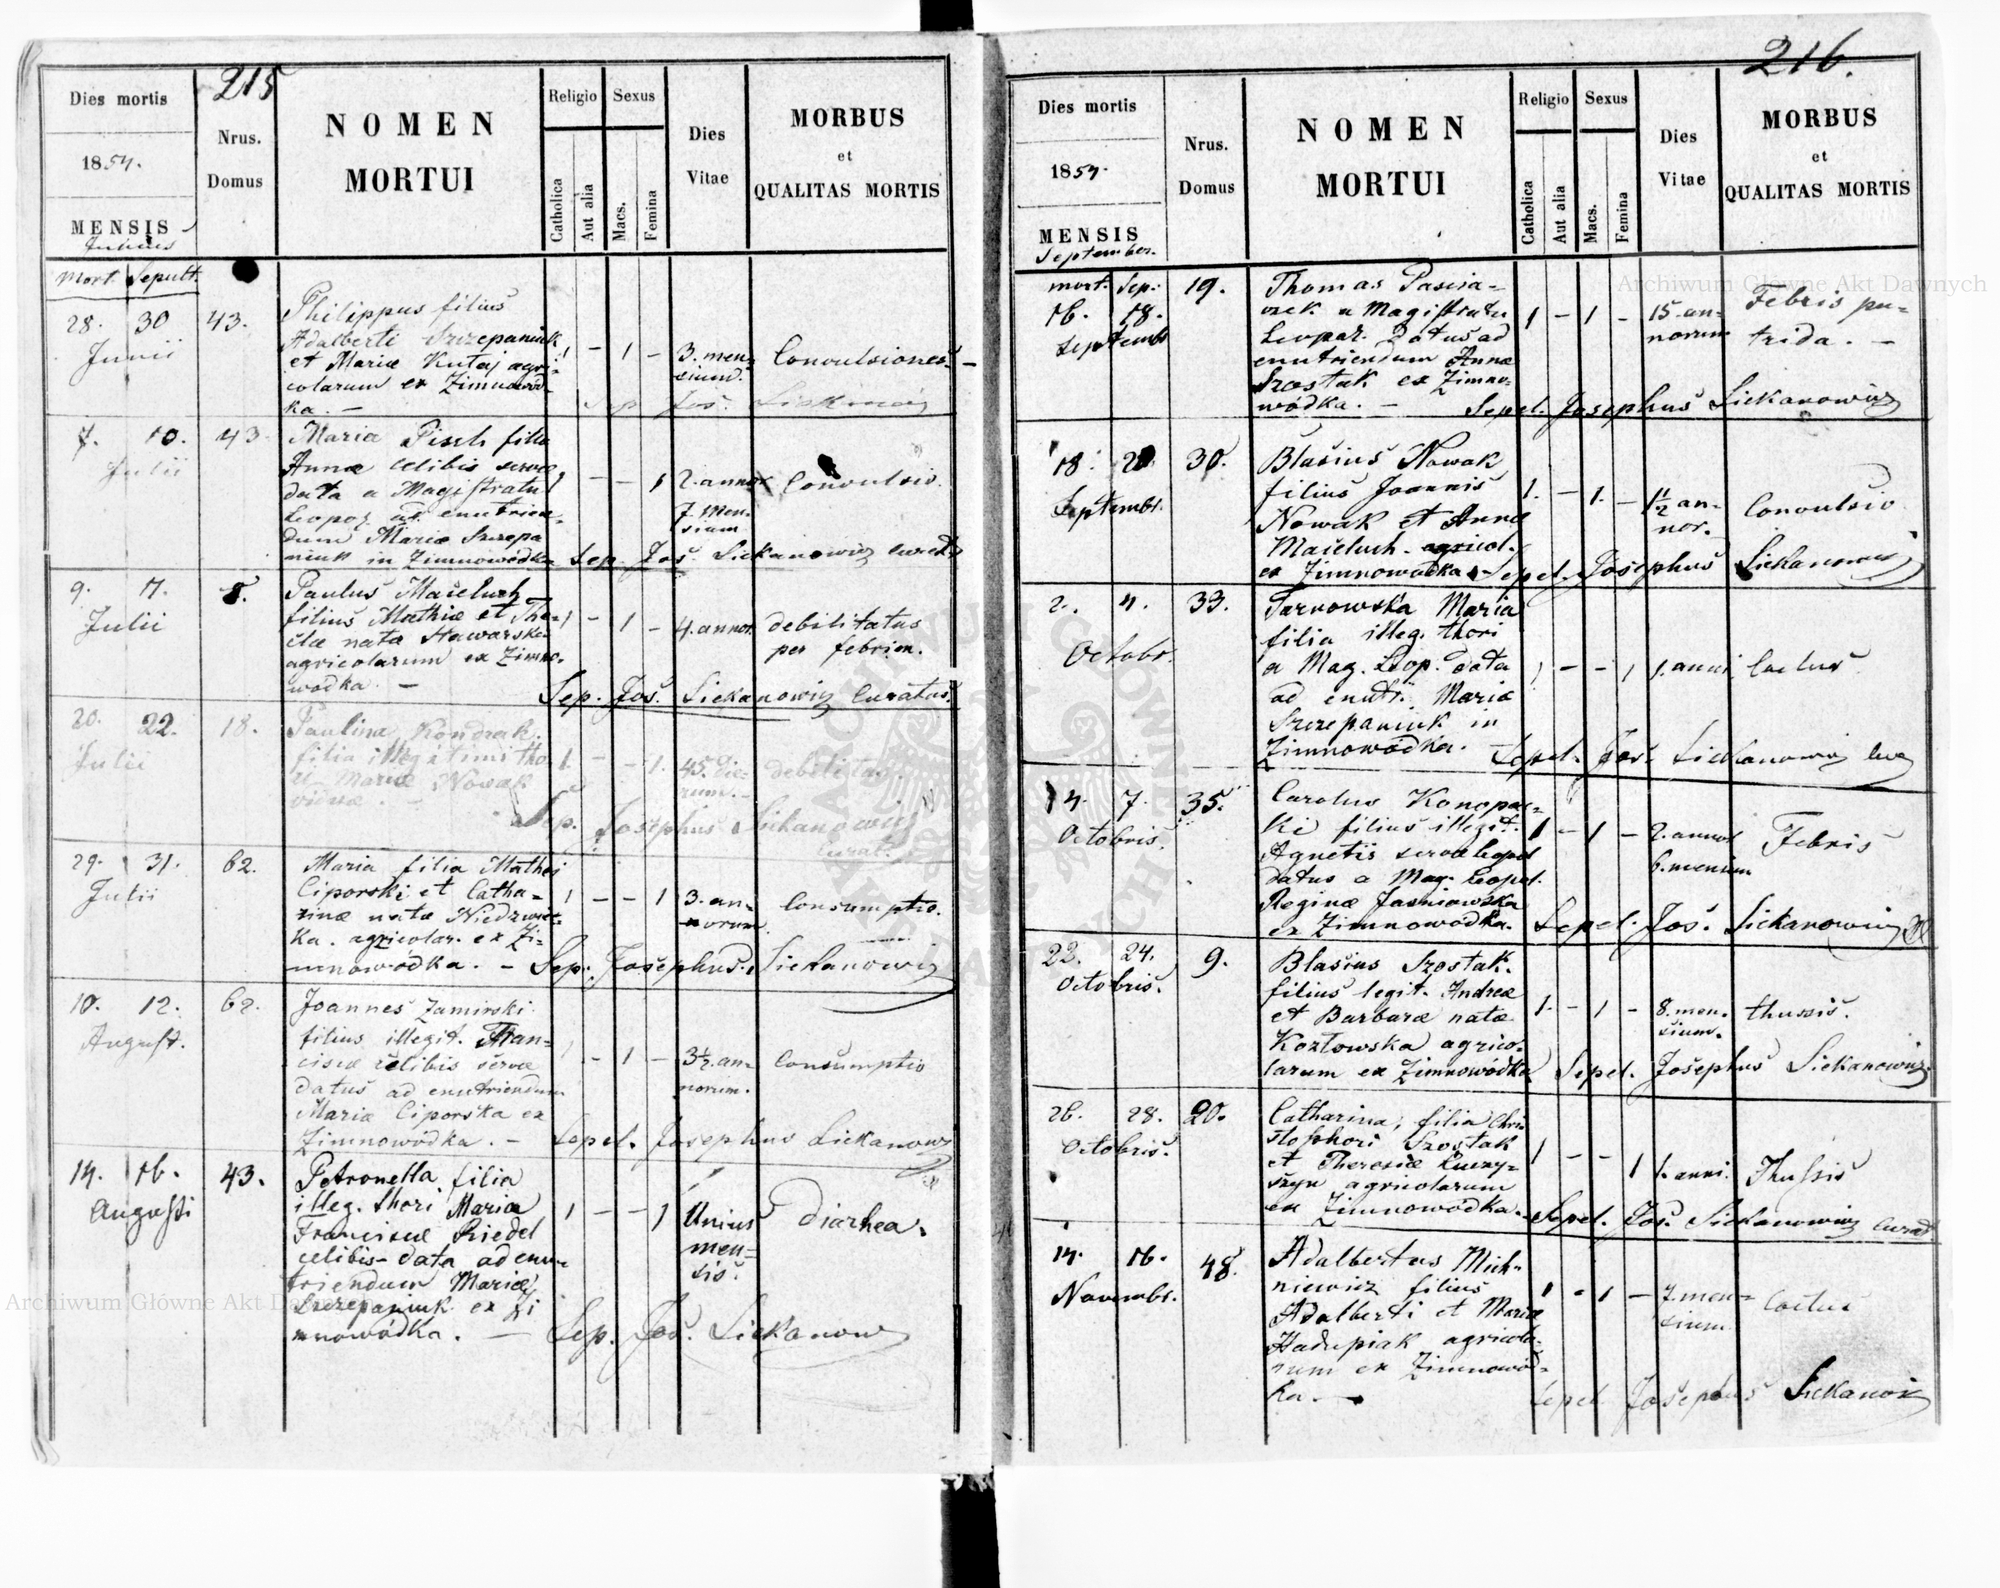 215
Dies mortis
1857.
MENSIS
Nrus.
Domus
NOMEN
MORTUI
Religio
Sexus
Catholica
Aut alia
Macs.
Femina
Dies
Vitae
MORBUS
et
QUALITAS MORTIS
Mort. Sepult.
28. 30 43.
Junii
Philippus filius
Adalberti Szczepaniuk
et Mariæ Kutaj agri-
colarum ex Zimnowód-
ka. —
1 — 1 —
3. men-
sium.
Convulsiones. —
Sep. Jos.
7. 10. 43.
Julii
Maria Pisch filia
Annæ celibis servæ
data a Magistratu
Leopol. ad enutrien-
dum Mariæ Szczepa
niuk in Zimnowódka
1 — — 1
2. annor
7. Men-
sium
Convulsio.
Sep. Jos. Sickanowicz Curat.
9. 11. 8.
Julii
Paulus Maseluch
filius Mathiæ et The-
clæ nata Hawarska
agricolarum ex Zimno-
wodka. —
1 — 1 —
4. annor.
debilitatus
per febrim.
Sep. Jos. Sickanowicz Curatus.
20. 22. 18.
Julii
Paulina Kondrak
filia illegitimi tho-
ri Mariæ Nowak
viduæ. —
1 — — 1.
45. die-
rum. —
debilitas.
Sep. Josephus Sickanowicz
Curat.
29. 31. 62.
Julii
Maria filia Mathei
Ciporski et Catha-
rinæ natæ Niedzwiec-
ka. agricolar. ex Zi-
mnowodka. —
1 — — 1
3. an-
norum.
Consumptio.
Sep. Josephus. Sickanowicz
10. 12. 62.
August.
Joannes Zamirski
filius illegit. Fran-
ciscæ celibis servæ
datus ad enutriendum
Mariæ Ciporska ex
Zimnowódka. —
1 — 1 —
3½. an-
norum.
Consumptio
Sepel. Josephus Sickanowicz
14. 16. 43.
Augusti
Petronella filia
illeg. thori Maria
Franciscæ Riedel
celibis - data ad enu-
triendum Mariæ
Szczepaniuk ex Zi
mnowódka. —
1 — — 1
Unius
men-
sis.
Diarhea.
Sep. Jos. Sickanow
216.
Dies mortis
1857.
MENSIS
September.
Nrus.
Domus
NOMEN
MORTUI
Religio
Sexus
Catholica
Aut alia
Macs.
Femina
Dies
Vitae
MORBUS
et
QUALITAS MORTIS
mort. Sep. 19.
16. 18.
Septembr
Thomas Pasira-
a Magistratu
Leopol. Datus ad
enutriendum Annæ
Szostak ex Zimno-
wódka. —
1 — 1 —
15 an-
norum
Febris pu-
trida. —
Sepel. Josephus Sickanowicz
18. 20. 30.
Septembr.
Blasius Nowak
filius Joannis
Nowak et Anna
Maseluch - agricol.
ex Zimnowodka.
1. — 1. —
1½ an-
nor.
Convulsio
Sepel. Josephus Sickanowicz
2. 4. 33.
Octobr.
Tarnowska Maria
filia illeg. thori
a Mag. Leop. data
ad enutr. Mariæ
Szczepaniuk in
Zimnowódka. —
1 — — 1
1. anni
Coctus.
Sepel. Jos. Sickanowicz
4. 7. 35.
Octobris.
Carolus Konopac-
ki filius illegit.
Agnetis servæ Leopol
datus a Mag. Leopol.
Reginæ Jasniowska
ex Zimnowódka.
1 — 1 —
2. annor
6. mensium
Febris
Sepel. Jos. Sickanowicz
22. 24. 9.
Octobris.
Blasius Szostak.
filius legit. Andreæ
et Barbaræ natæ
Kozłowska agrico-
larum ex Zimnowódka
1. — 1 —
8. men-
sium.
thussis.
Sepel. Josephus Sickanowicz
26. 28. 20.
Octobris.
Catharina, filia Chri-
stophori Szostak
et Theresiæ
agricolarum
ex Zimnowodka.
1 — — 1
1. anni.
Thussis
Sepel. Jos. Sickanowicz Curat
14. 16. 48.
Novembr.
Adalbertus Mich-
niewicz filius
Adalberti et Mariæ
Hadupiak agricola-
rum ex Zimnowód-
ka. —
1 - 1 —
7. men-
sium
Coctus
Sepel. Josephus Sickanowicz
Archiwum Główne Akt Dawnych
Archiwum Główne Akt Dawnych
ARCHIWUM GŁÓWNE AKT DAWNYCH